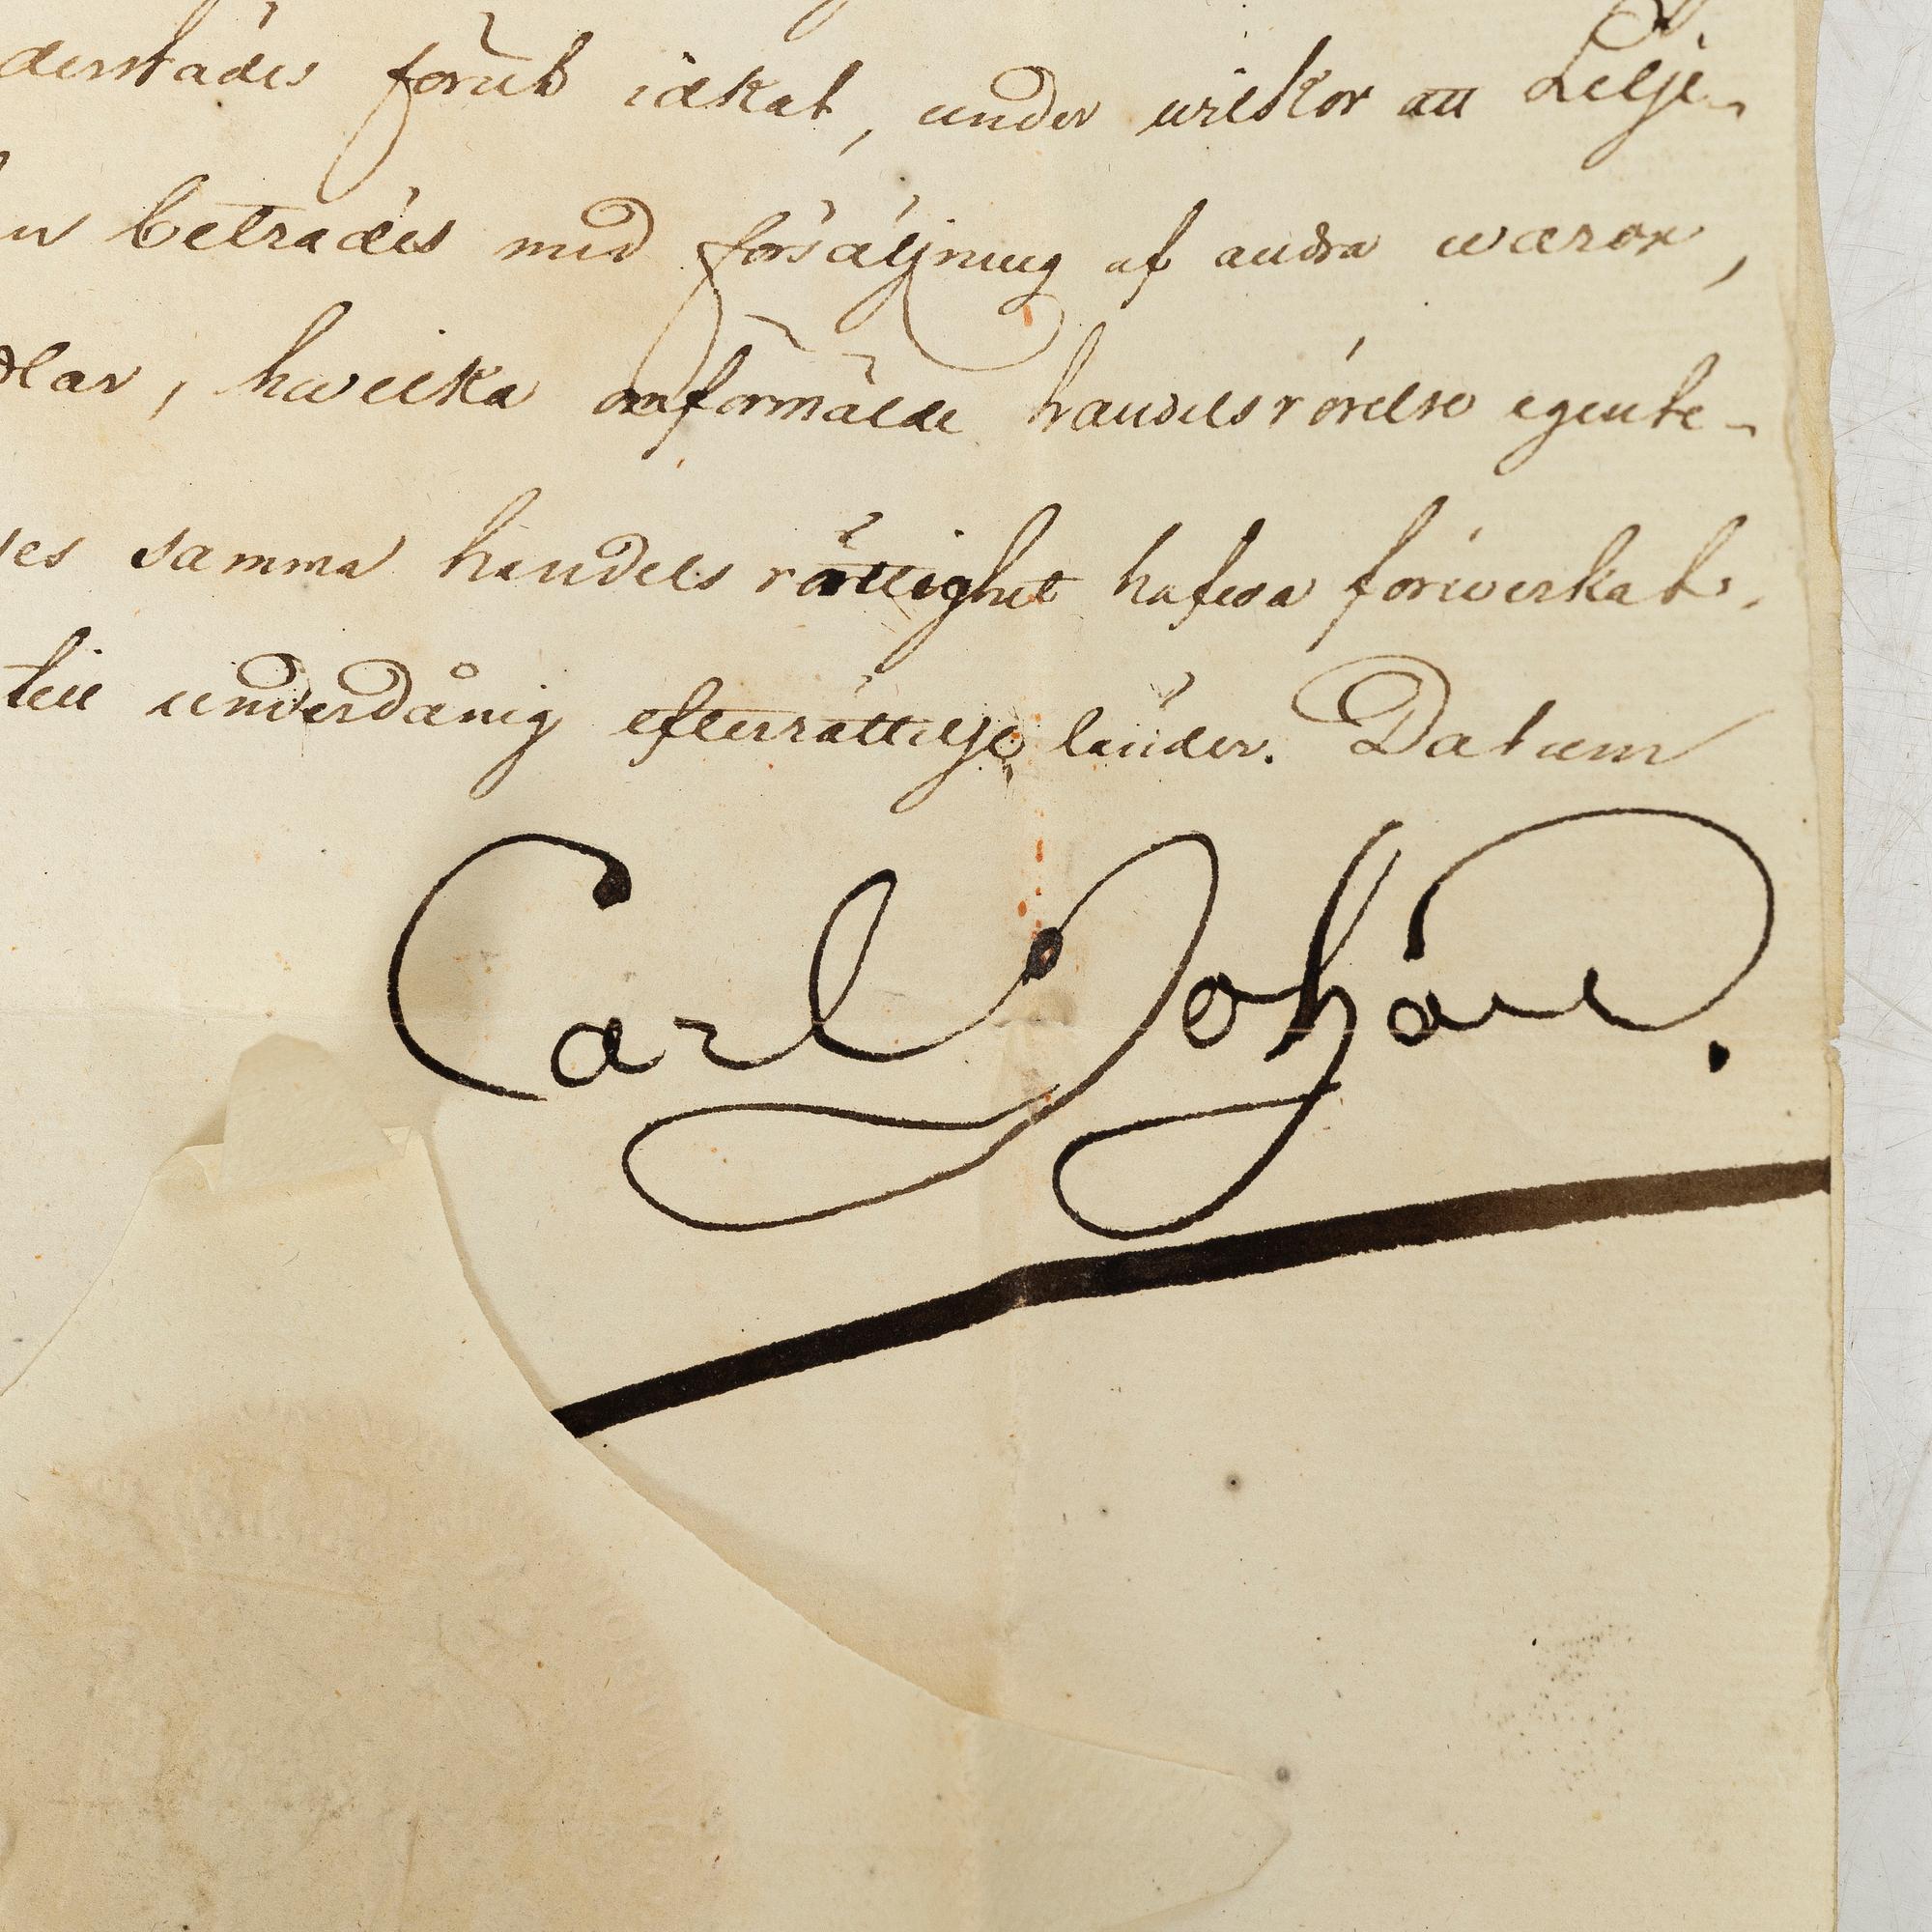 derstädes förut idkat, under wilkor att Lilje-
beträdes med försäljning af andra waror,
hwilka omförmälde handelsrörelse egente-
samma handels rättighet hafwa förwerkat.
till underdånig efterrättelse länder. Datum
Carl Johan.